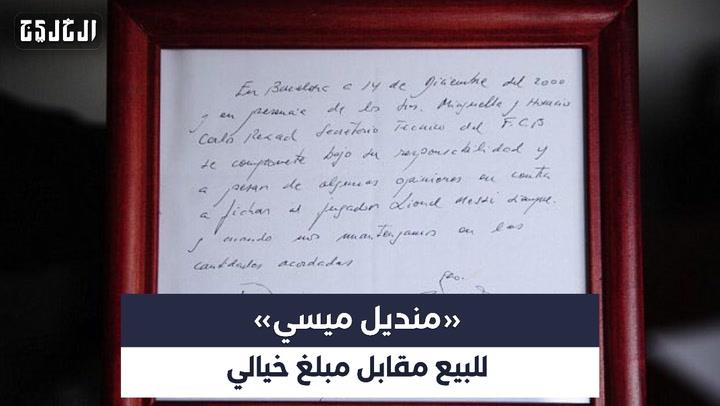 الخليج
En Barcelona a 14 de Diciembre del 2000
y en presencia de los Srs. Minguella y Horacio
Carlos Rexach Secretario Técnico del F.C.B
se compromete bajo su responsabilidad y
a pesar de algunas opiniones en contra
a fichar al jugador Lionel Messi siempre
y cuando nos mantengamos en las
cantidades acordadas
«منديل ميسي»
للبيع مقابل مبلغ خيالي